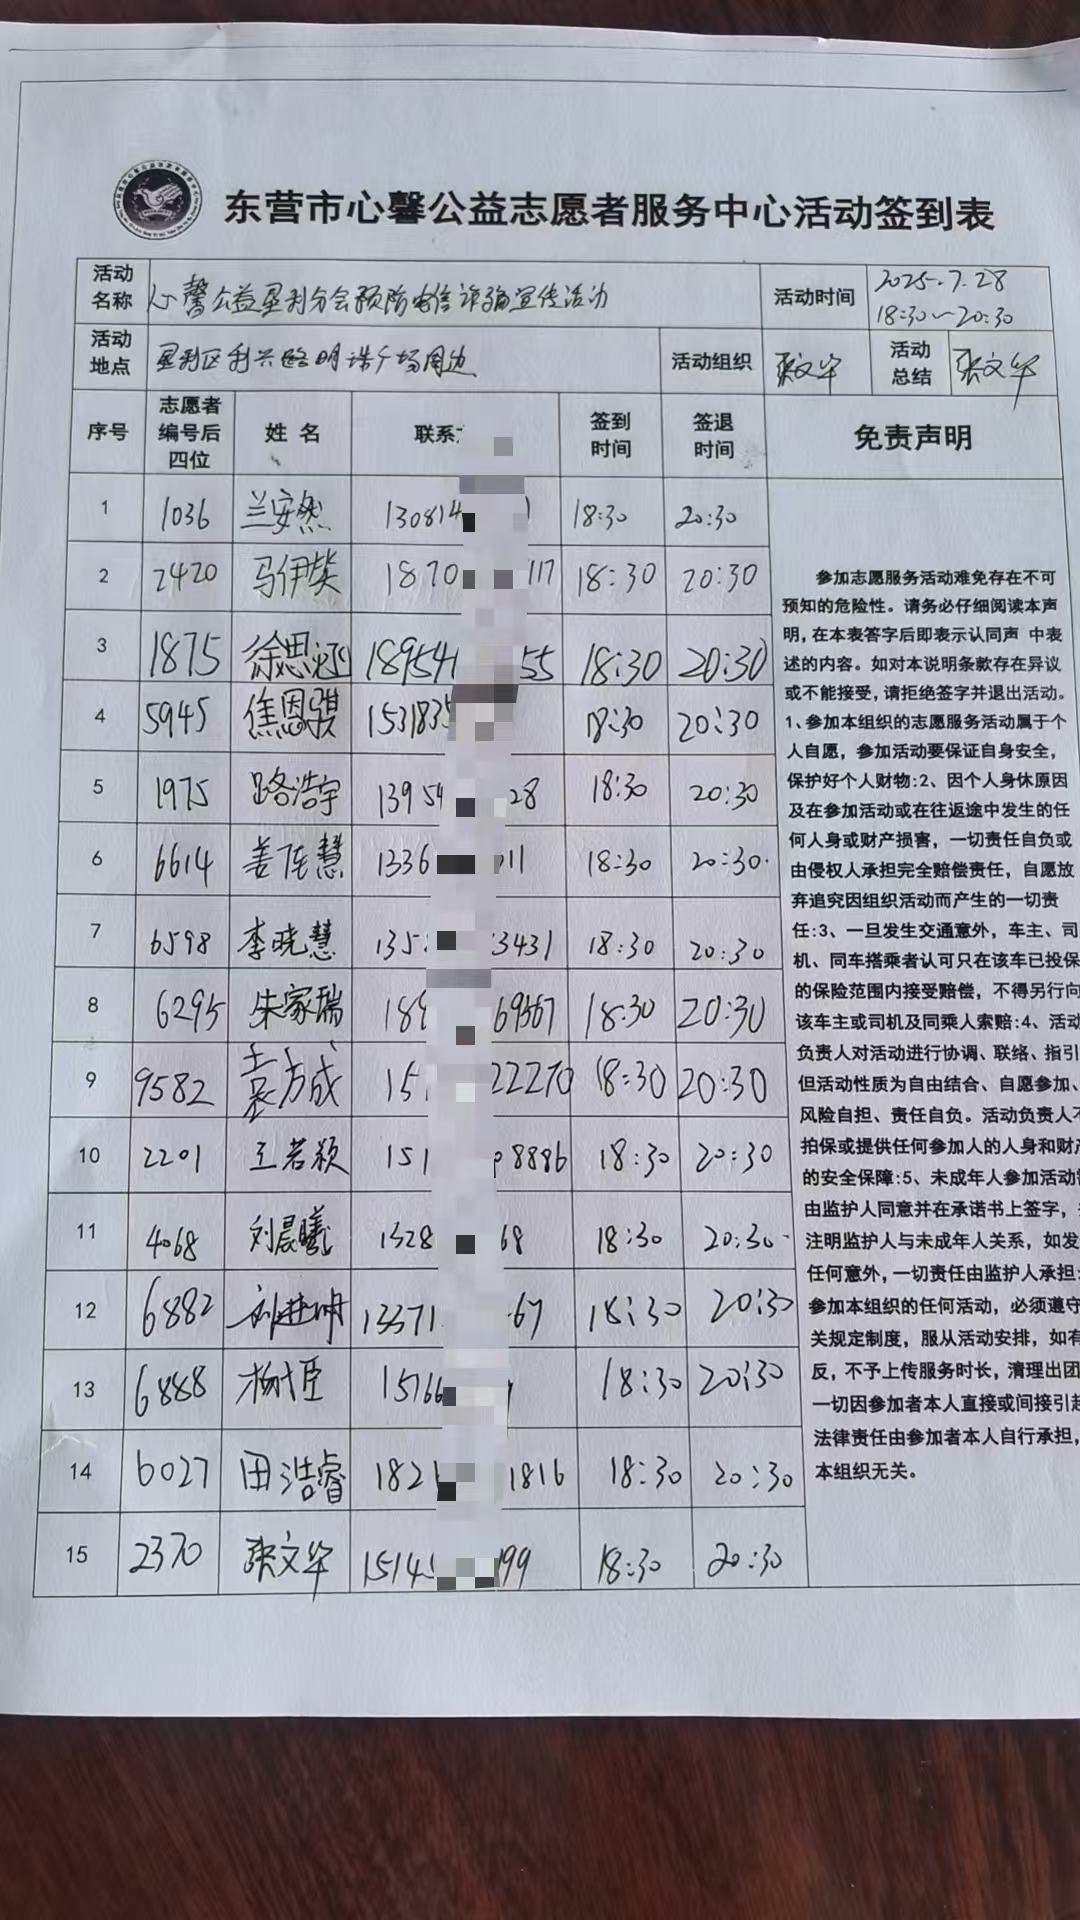 东营市心馨公益志愿者服务中心活动签到表
活动名称 心馨公益垦利分会预防电信诈骗宣传活动 活动时间 2025.7.28 18:30~20:30
活动地点 垦利区利兴路明珠广场周边 活动组织 张文华 活动总结 张文华
序号 志愿者编号后四位 姓名 联系 签到时间 签退时间 免责声明
1 1036 兰安然 130814 18:30 20:30
2 2420 马伊 1870 117 18:30 20:30
3 1875 徐思涵 189541 55 18:30 20:30
4 5945 焦恩骐 1531835 18:30 20:30
5 1975 路浩宇 13954 28 18:30 20:30
6 6614 姜 慧 1336 011 18:30 20:30
7 6598 李晓慧 135 3431 18:30 20:30
8 6295 朱家瑞 189 69567 18:30 20:30
9 9582 袁方成 151 22270 18:30 20:30
10 2201 王若颖 151 8886 18:30 20:30
11 4068 刘晨曦 1328 68 18:30 20:30
12 6882 13371 67 18:30 20:30
13 6888 杨 臣 15166 18:30 20:30
14 6027 田浩睿 1821 1816 18:30 20:30
15 2370 张文华 15145 199 18:30 20:30
参加志愿服务活动难免存在不可
预知的危险性。请务必仔细阅读本声
明,在本表答字后即表示认同声 中表
述的内容。如对本说明条款存在异议
或不能接受,请拒绝签字并退出活动。
1、参加本组织的志愿服务活动属于个
人自愿，参加活动要保证自身安全,
保护好个人财物:2、因个人身休原因
及在参加活动或在往返途中发生的任
何人身或财产损害，一切责任自负或
由侵权人承担完全赔偿责任，自愿放
弃追究因组织活动而产生的一切责
任:3、一旦发生交通意外，车主、司
机、同车搭乘者认可只在该车已投保
的保险范围内接受赔偿，不得另行向
该车主或司机及同乘人索赔:4、活动
负责人对活动进行协调、联络、指引
但活动性质为自由结合、自愿参加、
风险自担、责任自负。活动负责人不
拍保或提供任何参加人的人身和财产
的安全保障:5、未成年人参加活动需
由监护人同意并在承诺书上签字，
注明监护人与未成年人关系，如发
任何意外,一切责任由监护人承担:
参加本组织的任何活动，必须遵守
关规定制度，服从活动安排，如有
反，不予上传服务时长，清理出团
一切因参加者本人直接或间接引起
法律责任由参加者本人自行承担,
本组织无关。